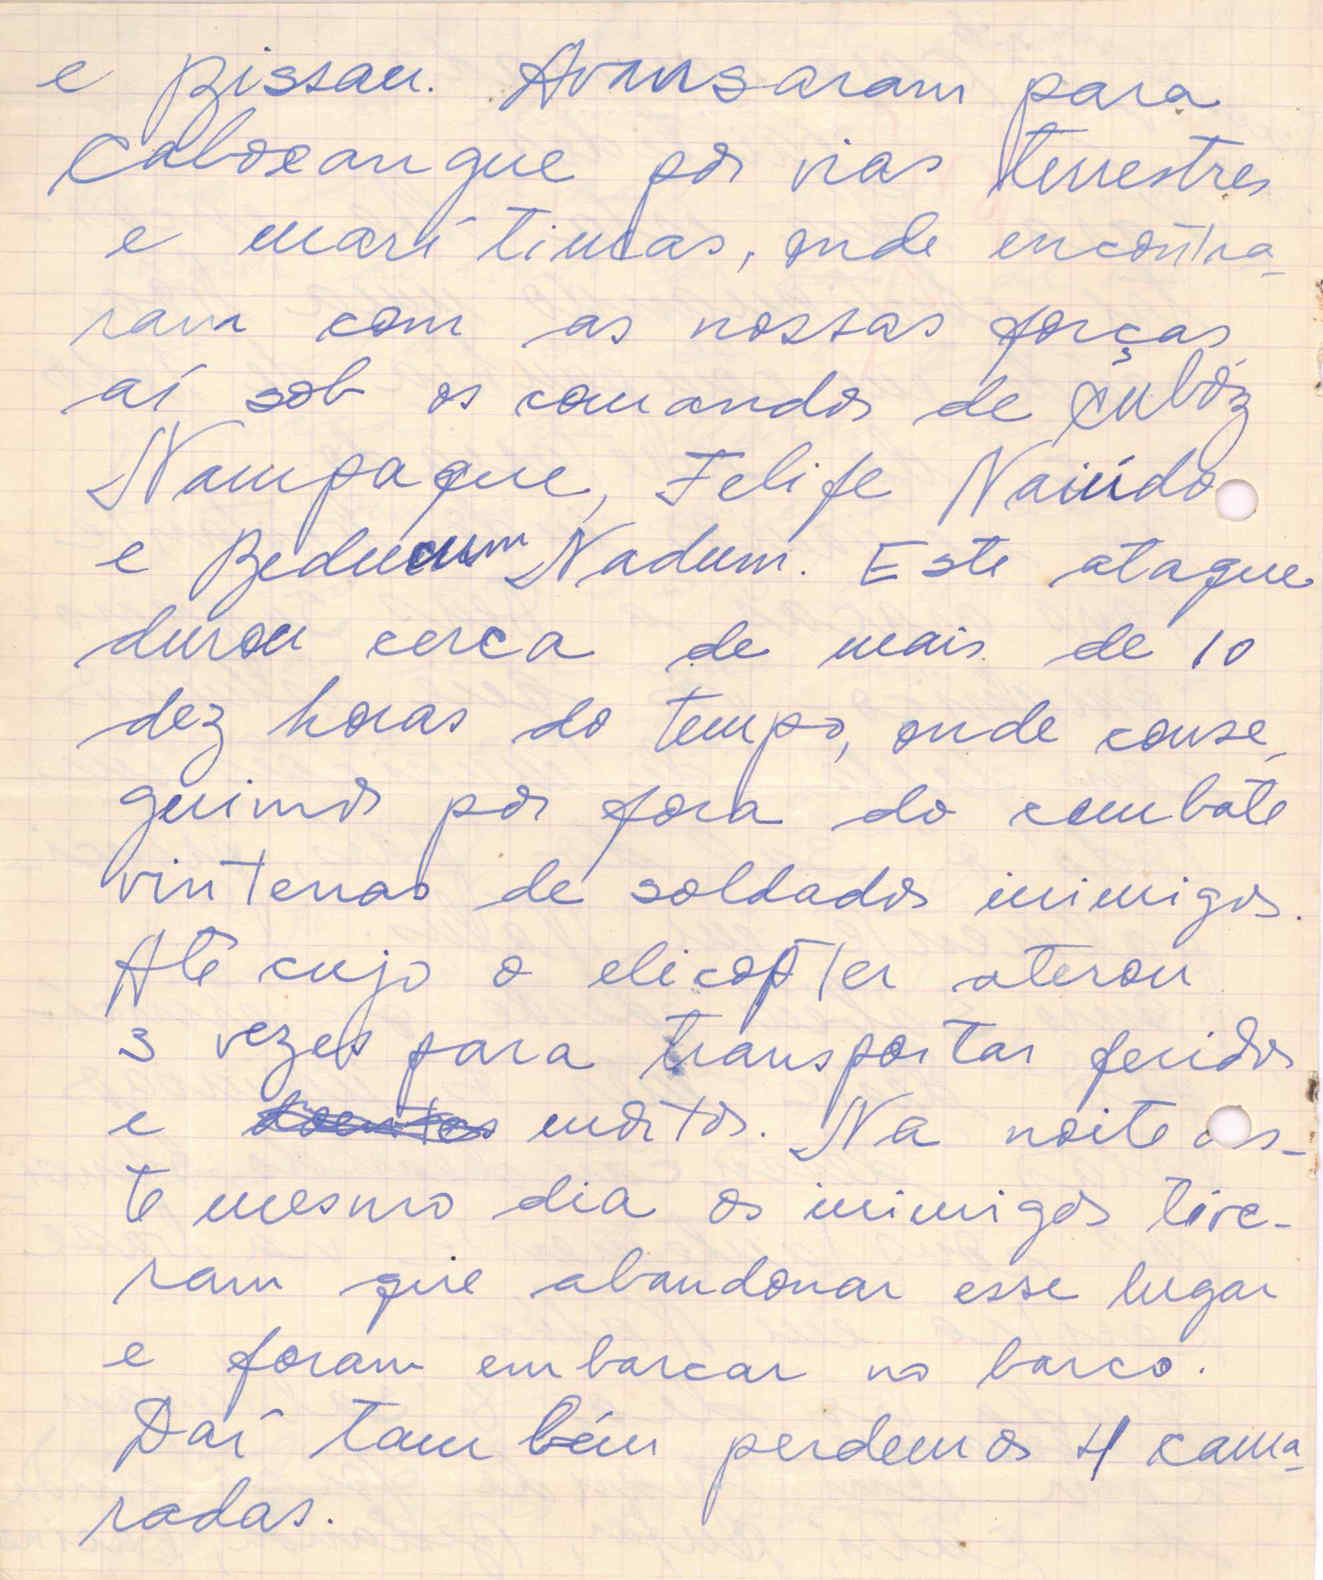 e Bissau. Avansaram para
Caboxangue por vias terrestres
e marítimas, onde encontra-
ram com as nossas forças
aí sob os comandos de Çubóz
Nampaque, Felife Naiúdo
e Nadum. Este ataque
durou cerca de mais de 10
dez horas do tempo, onde conse-
guimos por fora do combate
vintenas de soldados inimigos.
Até cujo o elicopter aterou
3 vezes para transportar feridos
e mortos. Na noite des-
te mesmo dia os inimigos tive-
ram que abandonar esse lugar
e foram embarcar no barco.
Daí também perdemos 4 cama-
radas.